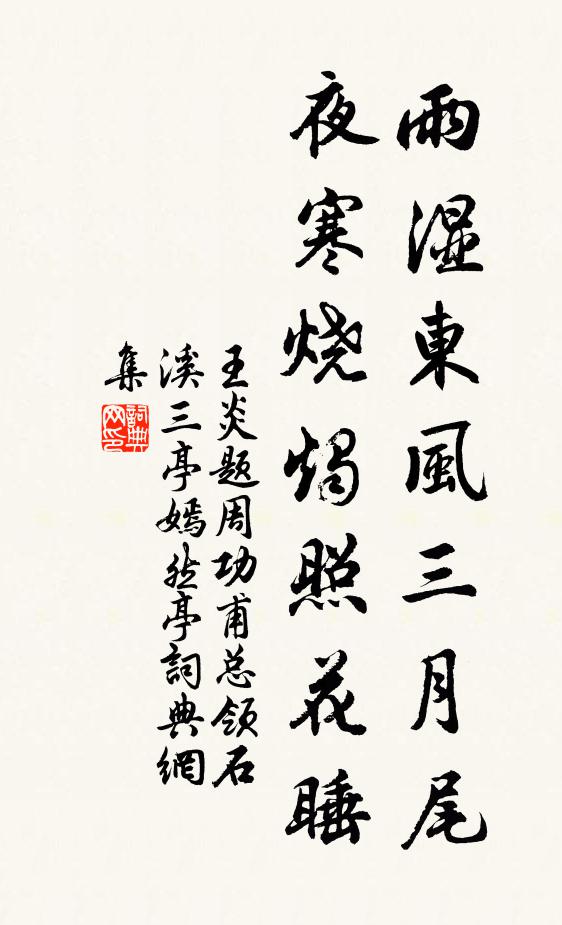 雨湿東風三月尾
夜寒烧燭照花睡
王炎题周功甫总领石
溪三亭嫣然亭詞典網
集
詞典网印